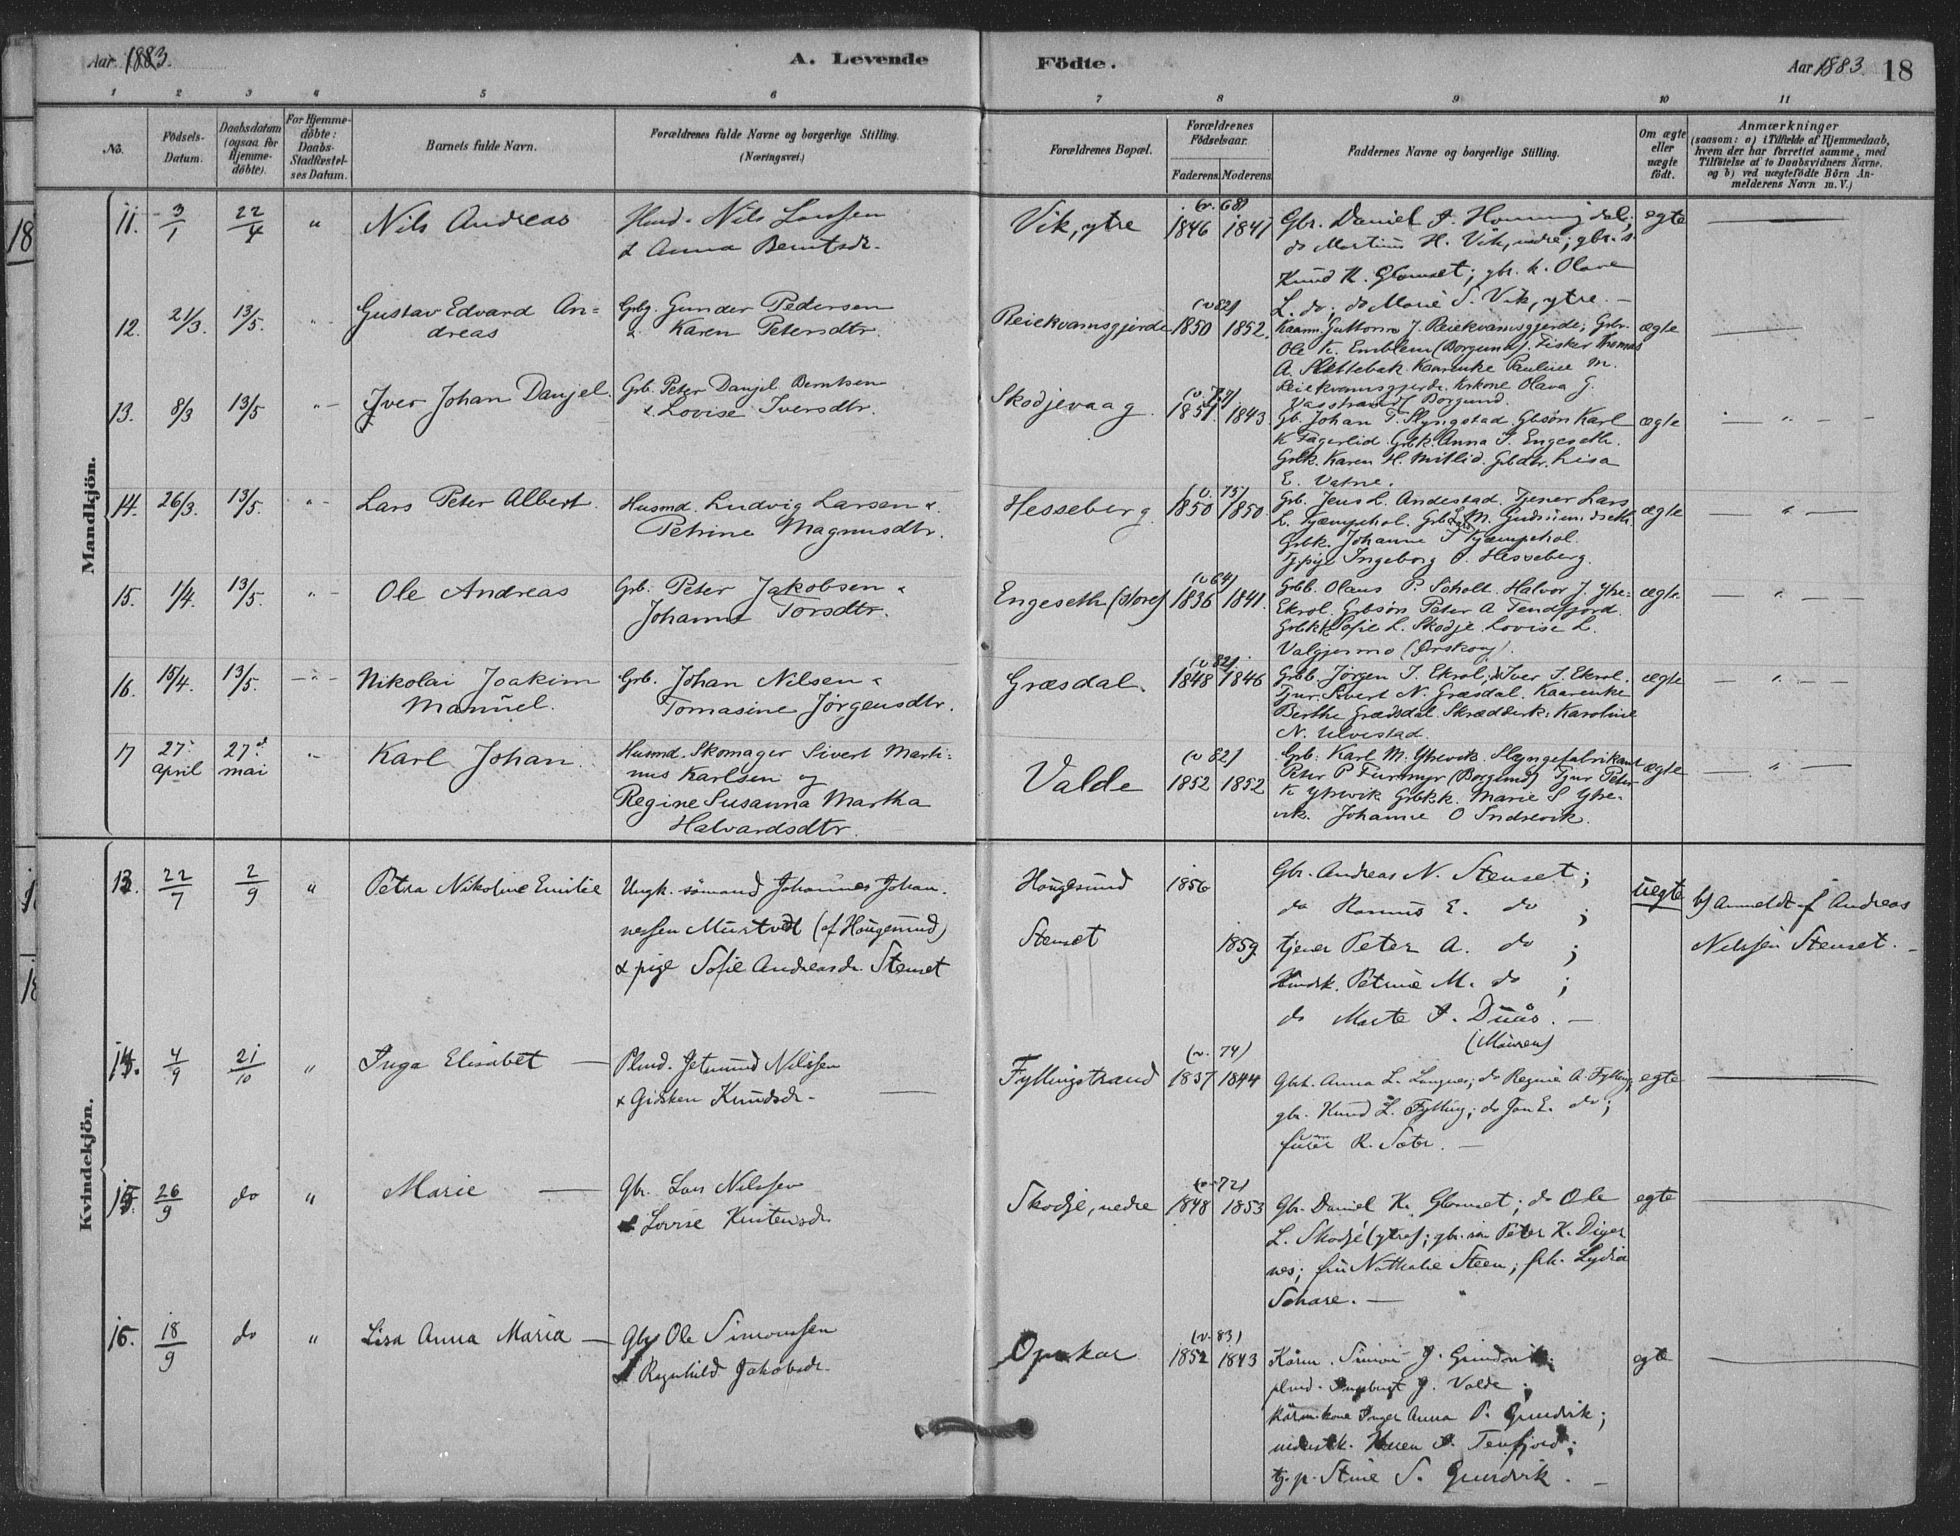 Aar 1883.
A. Levende
Födte.
Aar 1883. 18
1 2 3 4 5 6 7 8 9 10 11
No.
Födsels-Datum.
Daabsdatum (ogsaa for Hjemmedöbte).
For Hjemmedöbte: Daabs-Stadfæstelses Datum.
Barnets fulde Navn.
Forældrenes fulde Navne og borgerlige Stilling. (Næringsvei.)
Forældrenes Bopæl.
Forældrenes Födselsaar.
Faderens. Moderens.
Faddernes Navne og borgerlige Stilling.
Om ægte eller uægte födt.
Anmærkninger
(saasom: a) i Tilfælde af Hjemmedaab, hvem der har forrettet samme, med Tilföielse af to Daabsvidners Navne, og b) ved uægtefödte Börn Anmelderens Navn m. V.)
Mandkjön.
11. 3/1 22/4 " Nils Andreas
Nils Larssen
& Anna Berntsdr.
Vik, ytre
(v. 68)
1846 1841
Gbr. Daniel J.
do Martinus H. Vik, indre; gbr. s.
Knud K. Glomset; gbr. k. Olave
L. do; do Marie S. Vik, ytre.
egte
12. 21/3. 13/5. Gustav Edvard Andreas
Gunder Pedersen
& Karen Petersdtr.
Reiekvamsgjerde
(v 82)
1850 1852.
Kaarm. Guttorm J. Reiekvamsgjerde; Grbr.
Ole K. Emblem (Borgund). Fisker Thomas
A. Slettebak. Kaarenke Pauline M.
Reiekvamsgjerde. Kirkone Olava G.
Vasstrand Borgund.
ægte
13. 8/3 13/5. Iver Johan Danjel.
Grb. Peter Danjel Berntsen
& Lovise Iversdtr.
Skodjevaag.
1851. 1843.
Gb. Johan T. Slyngstad. Gbsön Karl
K Fagerlid. Grbk. Anna I. Engeseth.
Grbk. Karen H. Mitlid. Gbdtr. Lisa
E. Vatne.
ægte
14. 26/3. 13/5. Lars Peter Albert.
Husmd. Ludvig Larsen &
Petrine Magnusdtr.
Hesseberg.
(v. 75)
1850 1850.
Grb. Jens L. Andestad. Tjener Lars
L. Kjempehol. Grb M.
Grbk. Johanne I Kjempehol.
Tjpige Ingeborg O. Hesseberg.
ægte
15. 1/4. 13/5. Ole Andreas
Grb. Peter Jakobsen &
Johanne Torsdtr.
Engeseth (store)
(v 64)
1836 1841.
Grbb. Olaus P. Scholt. Halvor J. Ytre-
Ekrol. Grbsön Peter A Tendfjord.
Grbkk Sofie L. Skodje. Lovise L.
Valgjermo (Örskog).
ægte
16. 15/4. 13/5. Nikolai Joakim
Manuel.
Grb. Johan Nilsen &
Tomasine Jörgensdtr.
Græsdal.
(v 82).
1848 1846
Grbb. Jörgen I. Ekrol, do Iver I. Ekrol.
Tjur. Sivert N. Græsdal. Kaarenke
Berthe Græsdal. Skrædderk: Karoline
N. Ulvestad.
ægte
17 27 april 27de mai Karl Johan.
Husmd. Skomager Sivert Martinus Karlsen og
Regine Susanna Martha
Halvardsdtr.
Valde
(v 82)
1852 1852
Grb. Karl M. Ytrevik. Slyngefabrikant
Peter P Furmyr (Borgund) Tjur Peter
K Ytrevik Grbkk. Marie S Ytrevik. Johanne O Indrevik.
ægte
Kvindekjön.
13. 22/7 2/9 " Petra Nikoline Emilie
Ungk. sömand Johannes Johannessen Murtvedt (af Hougesund)
& pige Sofie Andreasdr. Stenset
Hougesund
Stenset
1856
1859.
Gbr. Andreas N. Stenset;
do Rasmus E. do;
tjener Peter A. do;
Petrine M. do;
do Marte J. Duås.
(Mauren)
uegte
b) Anmeldt af Andreas
Nilssen Stenset.
14. 4/9 21/10 " Inga Elisabet
Plmd. Jetmund Nilssen
& Gidsken Knudsdr.
Fyllingstrand
(v. 74)
1837 1844
Gbrk. Anna L. Langnes; do Regine A. Fylling;
gbr. Knud L. Fylling; do Jon E. do;
R. Sæter.
egte
15. 26/9 do " Marie
Gbr. Lars Nilssen
& Lovise Kristensdr
Skodje, nedre
(v. 72)
1848 1853
Gbr. Daniel K. Glomset; do Ole
L. Skodje (ytre); gbr. sön Peter K. Digernes; fru Nathalie Steen; frk. Lydia
egte
16. 18/9 do " Lisa Anna Maria
Ole Simonssen
& Ragnhild Jakobsdr.
(v. 83)
1852 1843
Kårm. Simon J. Grindvik;
plmd. J. Valde;
kårmkone Inger Anna P. Grindvik;
Karen Tenfjord;
tj. p. Stine S. Grindvik.
egte